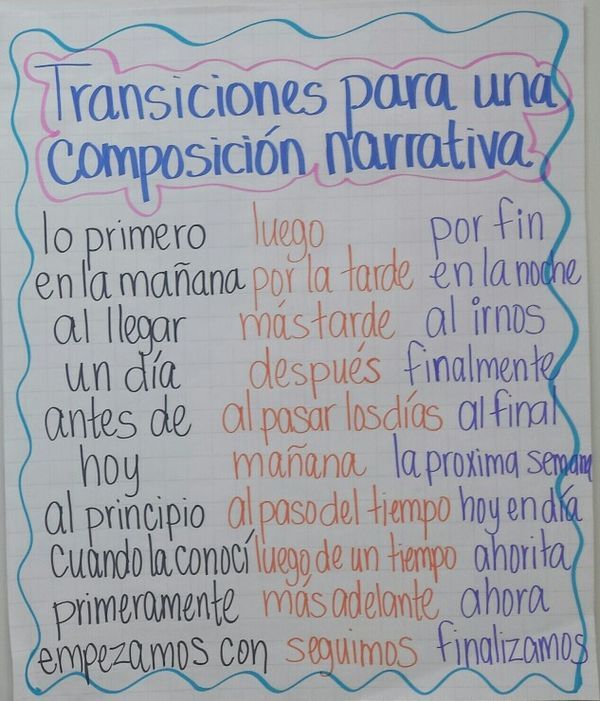 Transiciones para una
composición narrativa
lo primero luego por fin
en la mañana por la tarde en la noche
al llegar más tarde al irnos
un día después finalmente
antes de al pasar los días al final
hoy mañana la proxima semana
al principio al paso del tiempo hoy en día
cuando la conocí luego de un tiempo ahorita
primeramente más adelante ahora
empezamos con seguimos finalizamos